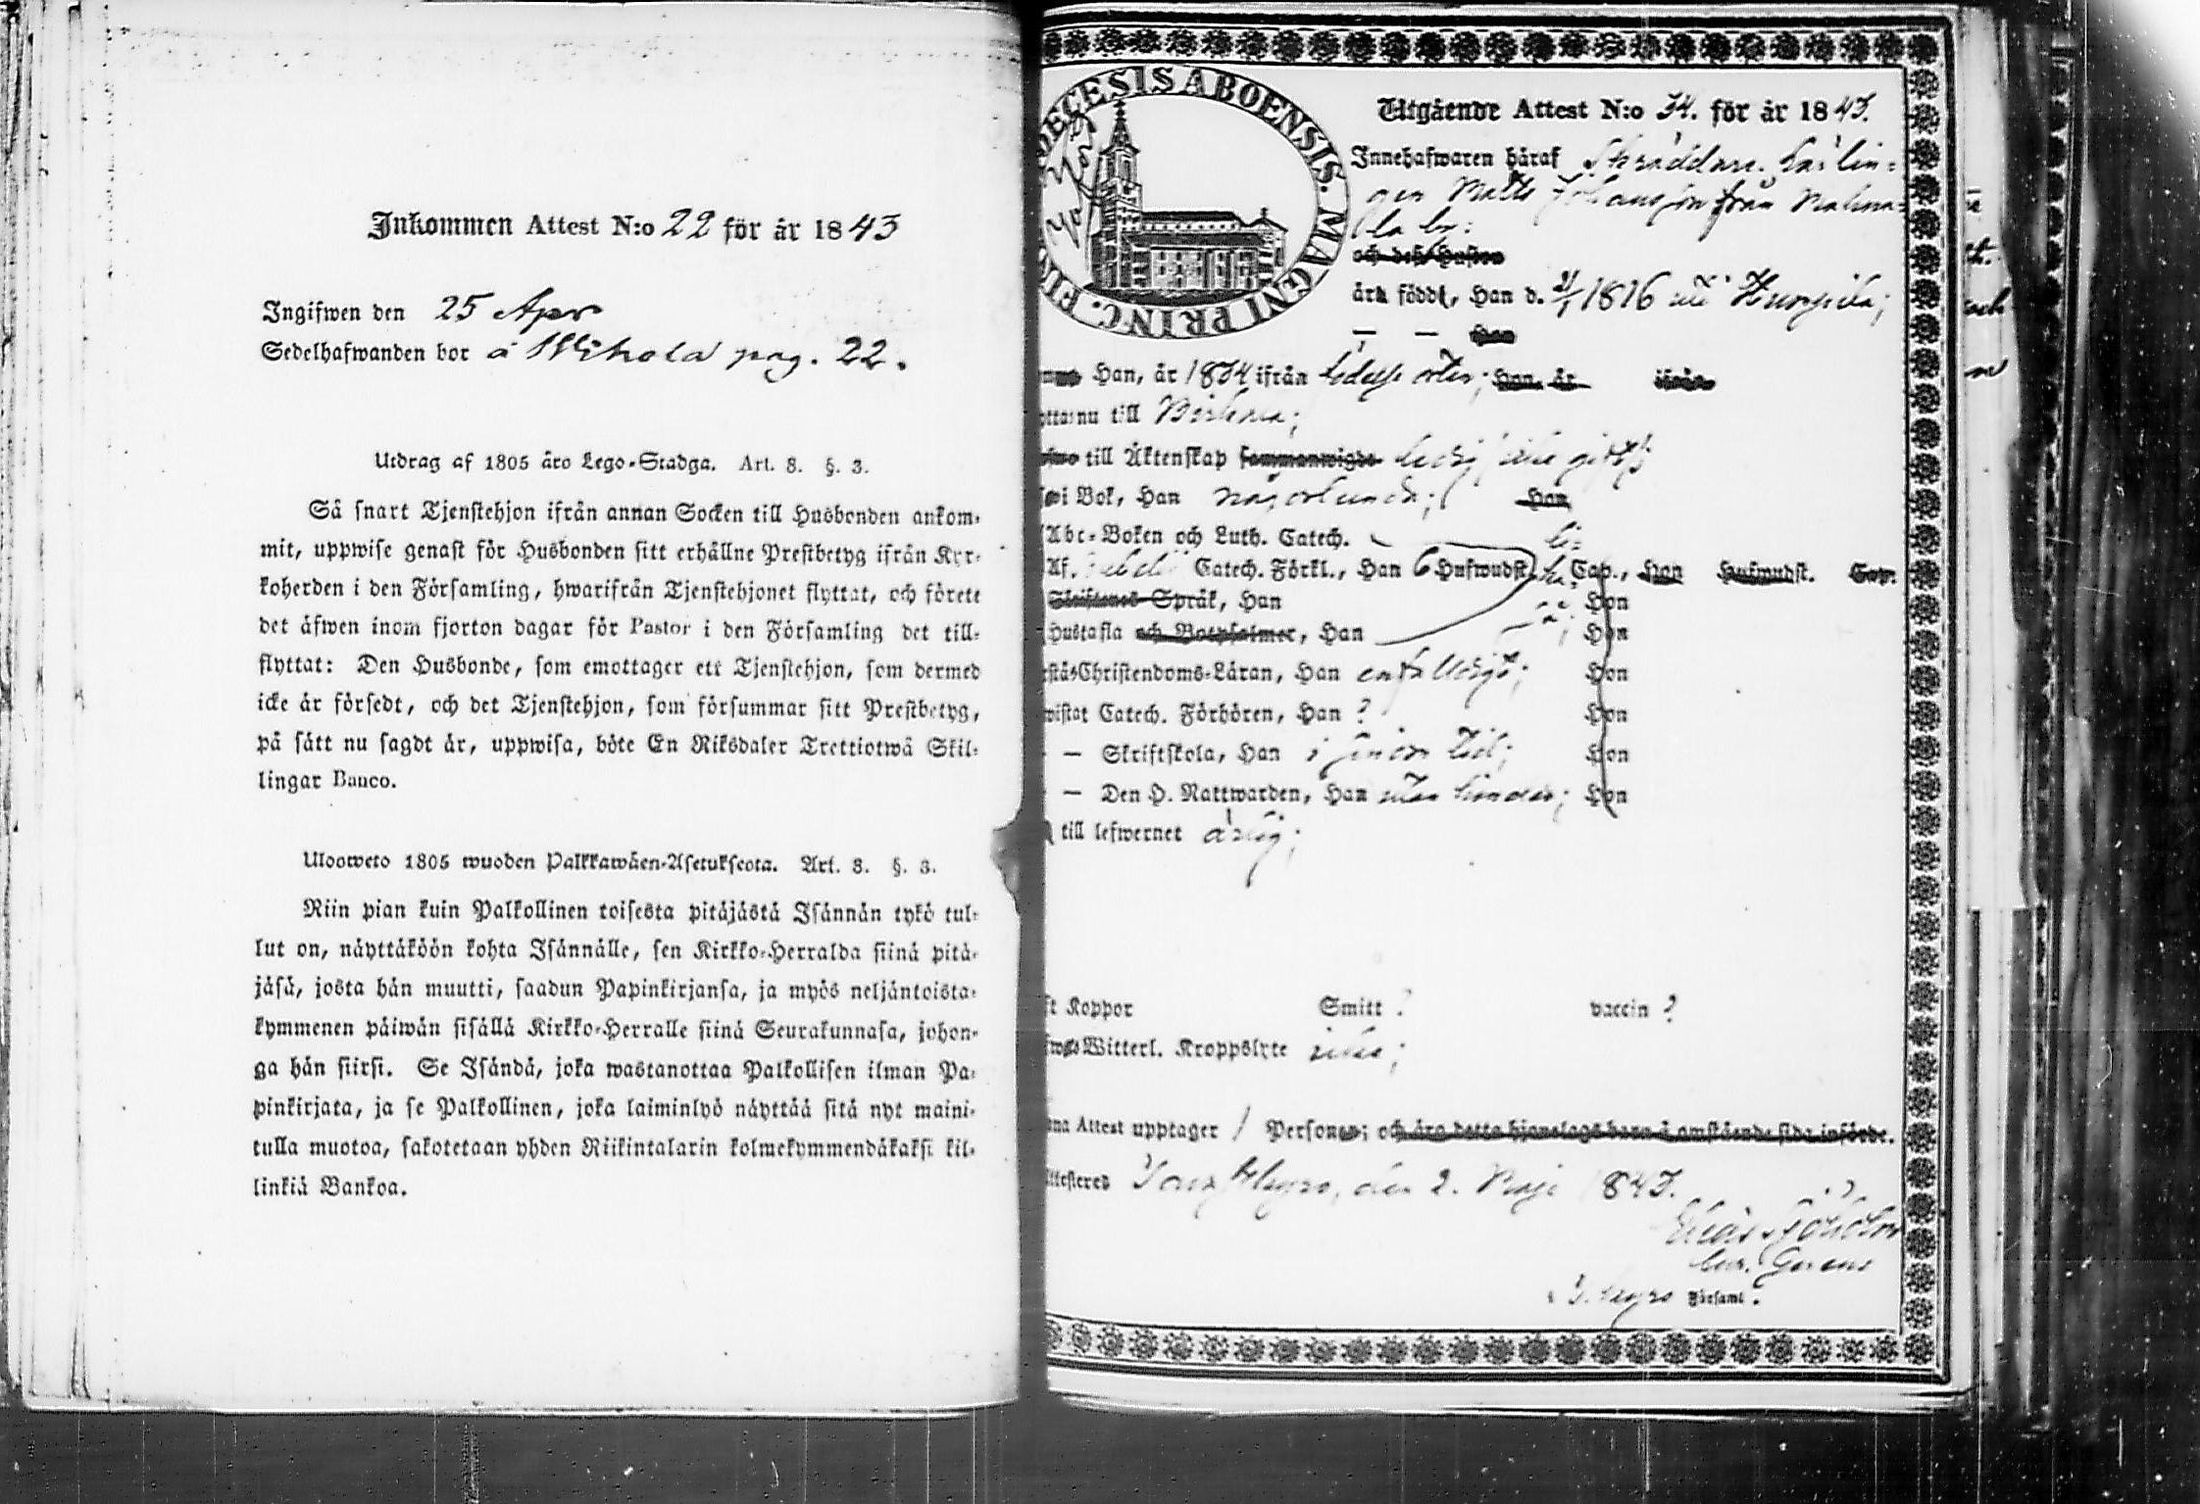 Inkommen Attest N:o 22 för år 1843
Ingifwen den 25 Apr
Sedelhafwanden bor å pag. 22.
Utdrag af 1805 års Lego-Stadga. Art. 8. §. 3.
Så snart Tjenstehjon ifrån annan Socken till Husbonden ankom-
mit, uppwise genast för Husbonden sitt erhållne Prestbetyg ifrån Kyr-
koherden i den Församling, hwarifrån Tjenstehjonet flyttat, och förete
det äfwen inom fjorton dagar för Pastor i den Församling det till-
flyttat: Den Husbonde, som emottager ett Tjenstehjon, som dermed
icke är försedt, och det Tjenstehjon, som försummar sitt Prestbetyg,
på sätt nu sagdt är, uppwisa, böte En Riksdaler Trettiotwå Skil-
lingar Banco.
Ulosweto 1805 wuoden Palkkawäen-Asetuksesta. Art. 8. §. 3.
Niin pian kuin Palkollinen toisesta pitäjästä Isännän tykö tul-
lut on, näyttäköön kohta Isännälle, sen Kirkko-Herralda siinä pitä-
jäsä, josta hän muutti, saadun Papinkirjansa, ja myös neljäntoista-
kymmenen päiwän sisällä Kirkko-Herralle siinä Seurakunnasa, johon-
ga hän siirsi. Se Isändä, joka wastanottaa Palkollisen ilman Pa-
pinkirjata, ja se Palkollinen, joka laiminlyö näyttää sitä nyt maini-
tulla muotoa, sakotetaan yhden Riikintalarin kolmekymmendäkaksi kil-
linkiä Bankoa.
DIOECESIS ABOENSIS. MAGNI PRINC. FIN
Utgående Attest N:o 34. för år 1843.
Innehafwaren häraf Skräddare Lärlin-
gen Matts Johansson från
la by:
och dess Hustru
äro född, Han d. 1816 uti Humpila;
— — Hon
Han, år 1834 ifrån födelse orten; Hon, år ifrån
nu till Birkala;
till Äktenskap sammanwigde ledig icke gift;
i Bok, Han någorlunda; Hon
Abc-Boken och Luth. Catech.
Af. Catech. Förkl., Han 6 Hufwudst. Cap., Hon Hufwudst. Cap.
Skriftenes Språk, Han Hon
Hustafla och Botpsalmer, Han Hon
Christendoms-Läran, Han enfaldigt; Hon
wistat Catech. Förhören, Han ? Hon
— Skriftskola, Han i sinom tid; Hon
— Den H. Nattwarden, Han utan hinder; Hon
till lefwernet ärlig;
Koppor Smitt ? vaccin ?
Witterl. Kroppslyte icke;
Attest upptager 1 Personer; och äro detta hjonelags barn å omstående sida införde.
Attesteres den 2. Maji 1843.
Församl.